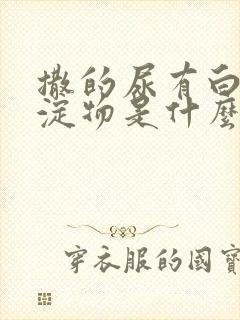 撒的尿有白
淀物是什麼
穿衣服的國寶